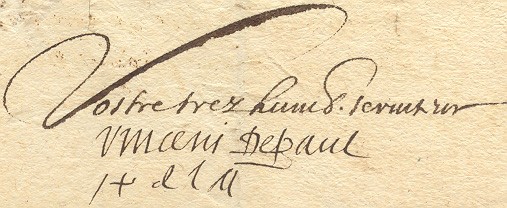 Vostre trez humb. serviteur
Vincent Depaul
i p d l M